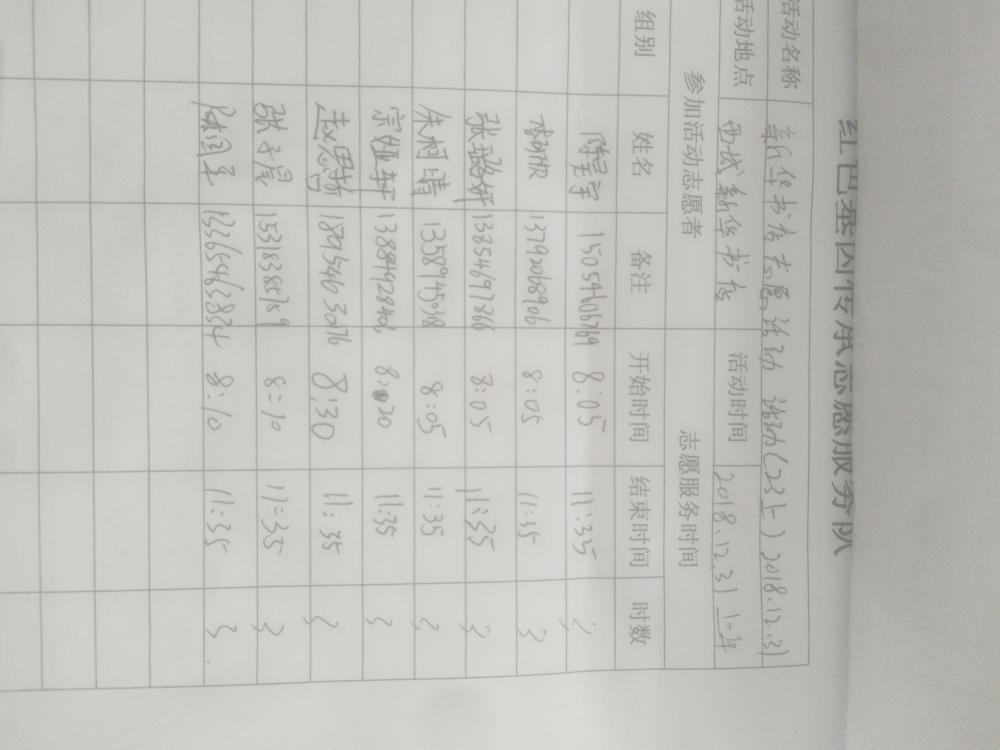 红色基因传承志愿服务队
活动名称 新华书店志愿活动 活动(23上) 2018.12.31
活动地点 西城新华书店 活动时间 2018.12.31 上午
参加活动志愿者 志愿服务时间
组别 姓名 备注 开始时间 结束时间 时数
15054606769 8:05 11:35
13792068906 8:05 11:35 3
张璐妍 13854697866 8:05 11:35 3
朱柯晴 8:05 11:35
宗娅轩 8:20 11:35 3
18954630976 8:30 11:35
张子晨 15318385759 8:10 11:35 3
13365463834 8:10 11:35 3